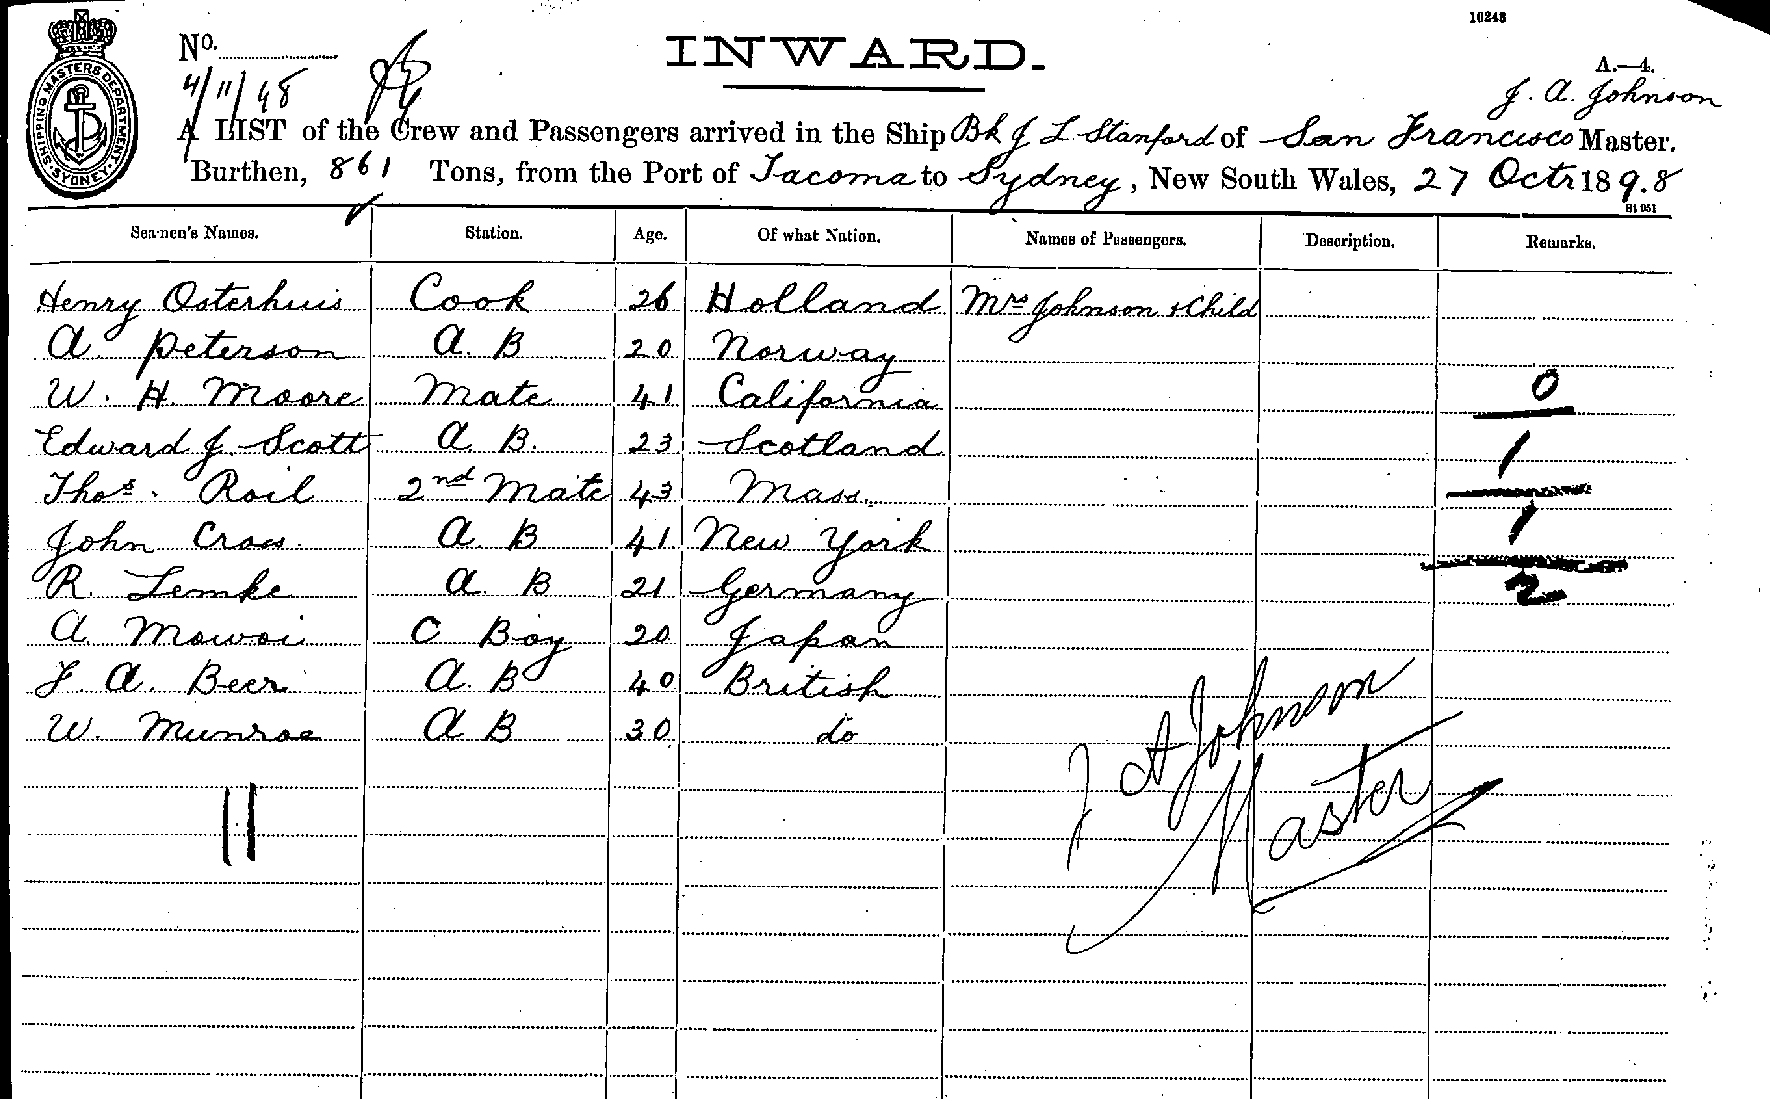 10248
No.
INWARD.
A.—4.
4/11/98
J. A. Johnson
A LIST of the Crew and Passengers arrived in the Ship Bk J L Stanford of San Francisco Master.
Burthen, 861 Tons, from the Port of Tacoma to Sydney, New South Wales, 27 Octr 1898
SHIPPING MASTERS DEPARTMENT SYDNEY
Seamen's Names. Station. Age. Of what Nation. Names of Passengers. Description. Remarks.
Henry Osterhuis Cook 26 Holland Mrs Johnson + Child
A. Peterson A. B 20 Norway
W. H. Moore Mate 41 California 0
Edward J. Scott A. B. 23 Scotland 1
Thos. Roil 2nd Mate 43 Mass.
John Cross A. B 41 New York 1
R. Lemke A. B 21 Germany 2
A. Mowoi C Boy 20 Japan
F. A. Beer A. B 40 British
W. Munroe A B 30 do
J A Johnson
Master
11